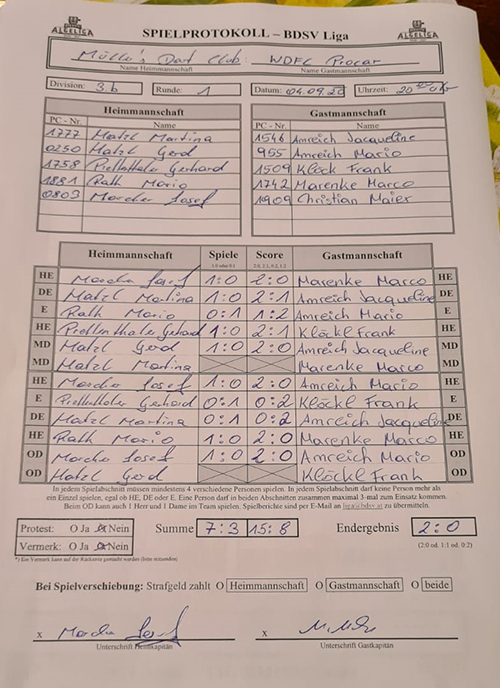 ALSELIGA SPIELPROTOKOLL – BDSV Liga ALSELIGA
Dart Club WDFC Procar
Name Heimmannschaft Name Gastmannschaft
Division: 3.b Runde: 1 Datum: 04.09.20 Uhrzeit: 20
Heimmannschaft Gastmannschaft
PC - Nr. Name PC - Nr. Name
1777 Matzl Martina 1546 Amreich Jacqueline
0250 Matzl Gerd 955 Amreich Mario
1758 Gerhard 1509 Klöckl Frank
1881 Rath Mario 1742 Marenke Marco
0803 Josef 1909 Christian Maier
Heimmannschaft Spiele Score Gastmannschaft
1:0 oder 0:1 2:0, 2:1, 0:2, 1:2
HE Josef 1:0 2:0 Marenke Marco HE
DE Matzl Martina 1:0 2:1 Amreich Jacqueline DE
E Rath Mario 0:1 1:2 Amreich Mario E
HE Gerhard 1:0 2:1 Klöckl Frank HE
MD Matzl Gerd 1:0 2:0 Amreich Jacqueline MD
MD Matzl Martina Marenke Marco MD
HE Josef 1:0 2:0 Amreich Mario HE
E Gerhard 0:1 0:2 Klöckl Frank E
DE Matzl Martina 0:1 0:2 Amreich Jacqueline DE
HE Rath Mario 1:0 2:0 Marenke Marco HE
OD Josef 1:0 2:0 Amreich Mario OD
OD Matzl Gerd Klöckl Frank OD
In jedem Spielabschnitt müssen mindestens 4 verschiedene Personen spielen. In jedem Spielabschnitt darf keine Person mehr als
ein Einzel spielen, egal ob HE, DE oder E. Eine Person darf in beiden Abschnitten zusammen maximal 3-mal zum Einsatz kommen.
Beim OD kann auch 1 Herr und 1 Dame im Team spielen. Spielberichte sind per E-Mail an liga@bdsv.at zu übermitteln.
Protest: O Ja O Nein Summe 7:3 15:8 Endergebnis 2:0
Vermerk: O Ja O Nein (2:0 od. 1:1 od. 0:2)
*) Ein Vermerk kann auf der Rückseite gemacht werden
Bei Spielverschiebung: Strafgeld zahlt O Heimmannschaft O Gastmannschaft O beide
x Josef x
Unterschrift Heimkapitän Unterschrift Gastkapitän